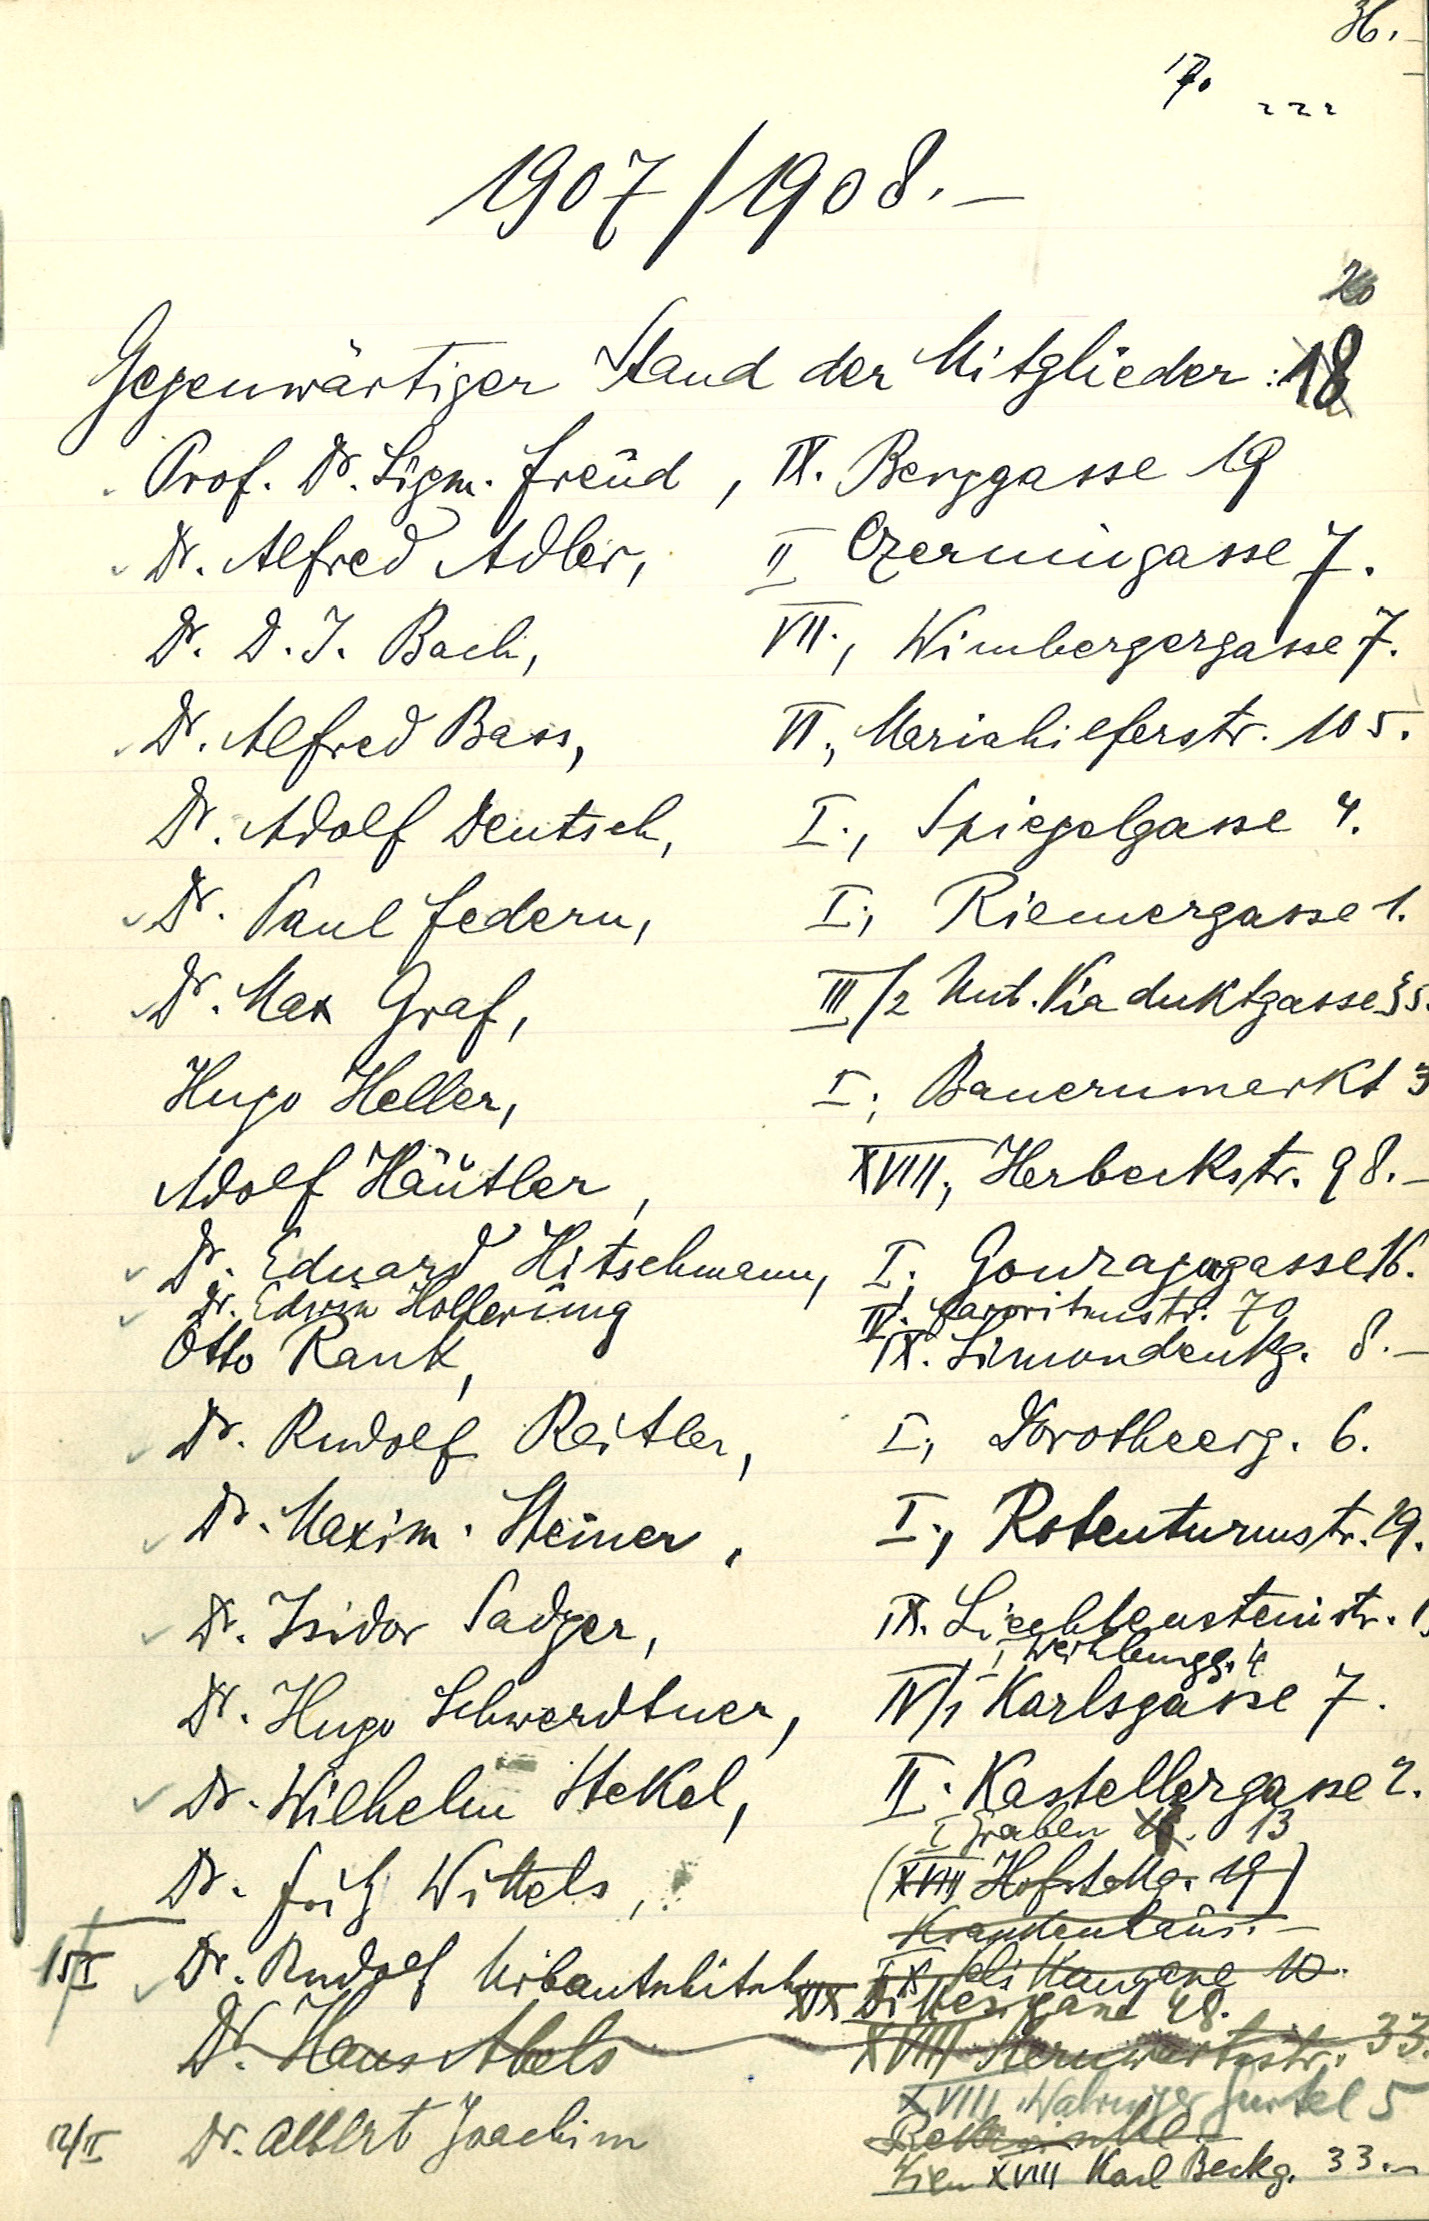 36.
17.
1907/1908.—
20
Gegenwärtiger Stand der Mitglieder: 18
Prof. Dr. Sigm. Freud, IX. Berggasse 19
Dr. Alfred Adler, II Czerningasse 7.
Dr. D. J. Bach, VII., Wimbergergasse 7.
Dr. Alfred Bass, VI., Mariahilferstr. 105.
Dr. Adolf Deutsch, I., Spiegelgasse 4.
Dr. Paul Federn, I., Riemergasse 1.
Dr. Max Graf, III/2 Unt. Viaduktgasse 35.
Hugo Heller, I., Bauernmarkt 3
Adolf Häutler, XVIII., Herbeckstr. 98.—
Dr. Eduard Hitschmann, I., Gonzagagasse 16.
Dr. Edwin Hollerung IV. Favoritenstr. 70
Otto Rank, IX. Simondenkg. 8.—
Dr. Rudolf Reitler, I., Dorotheerg. 6.
Dr. Maxim. Steiner, I., Rotenturmstr. 19.
Dr. Isidor Sadger, IX. Liechtensteinstr.
I, Weihburgg. 4
Dr. Hugo Schwerdtner, IV/1 Karlsgasse 7.
Dr. Wilhelm Stekel, II. Kastellezgasse 2.
I Graben 13
Dr. Fritz Wittels, (XVIII Hofstattg. 19)
Krankenhaus.—
15/I Dr. Rudolf Urbantschitsch IX 10.
XIX 48.
Dr. Hans Abels XVIII Sternwartestr. 33.
XVIII Währinger Gürtel 5
12/II Dr. Albert Joachim
Wien XVIII Karl Beckg. 33.—